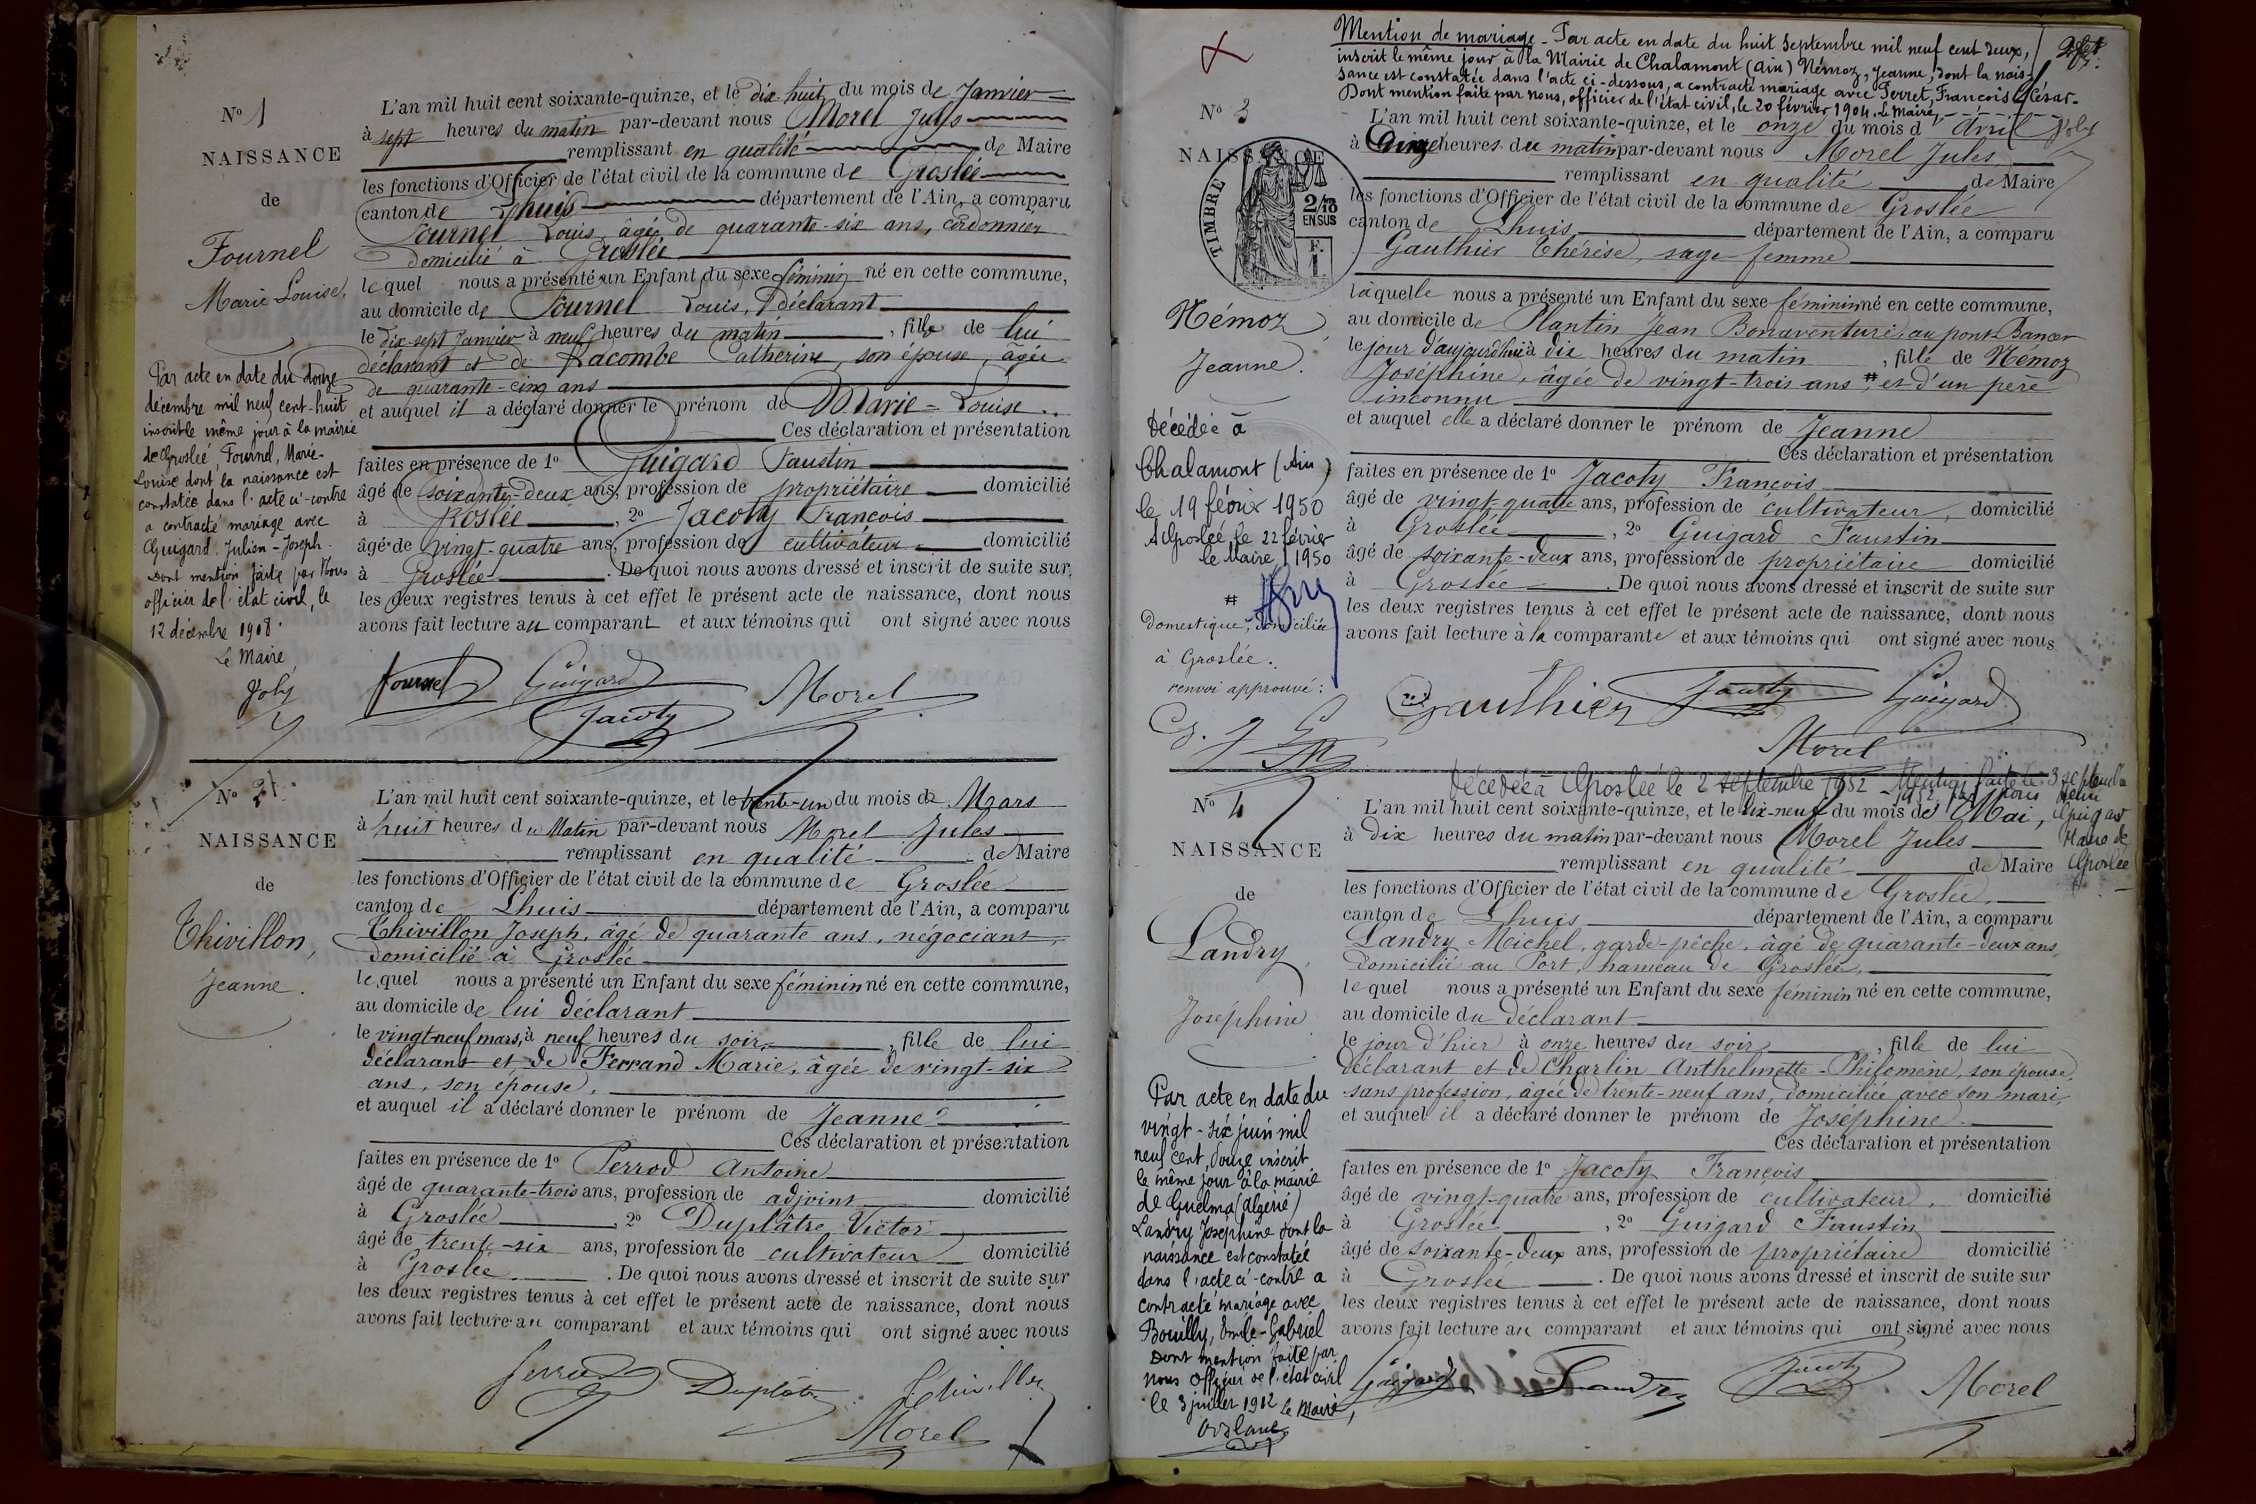 N° 1
NAISSANCE
de
Fournel
Marie Louise.
Par acte en date du douze
décembre mil neuf cent-huit
inscrit le même jour à la mairie
de Groslée, Fournel, Marie-
Louise dont la naissance est
constatée dans l'acte ci-contre
a contracté mariage avec
Guigard Julien-Joseph.
Dont mention faite par Nous
officier de l'état civil, le
12 décembre 1908.
Le Maire
Joly
L'an mil huit cent soixante-quinze, et le dix-huit du mois de Janvier
à sept heures du matin par-devant nous Morel Jules
remplissant en qualité de Maire
les fonctions d'Officier de l'état civil de la commune de Groslée
canton de Lhuis département de l'Ain, a comparu
Fournel Louis, âgé de quarante-six ans, cordonnier
domicilié à Groslée
lequel nous a présenté un Enfant du sexe féminin né en cette commune,
au domicile de Fournel Louis, déclarant
le dix-sept Janvier à neuf heures du matin, fille de lui
déclarant et de Lacombe Catherine, son épouse, âgée
de quarante-cinq ans
et auquel il a déclaré donner le prénom de Marie-Louise..
Ces déclaration et présentation
faites en présence de 1° Guigard Faustin
âgé de soixante-deux ans, profession de propriétaire domicilié
à Groslée, 2° Jacoty François
âgé de vingt-quatre ans, profession de cultivateur domicilié
à Groslée. De quoi nous avons dressé et inscrit de suite sur
les deux registres tenus à cet effet le présent acte de naissance, dont nous
avons fait lecture au comparant et aux témoins qui ont signé avec nous
Fournel Guigard
Jacoty Morel
N° 2
NAISSANCE
de
Thivillon,
Jeanne.
L'an mil huit cent soixante-quinze, et le trente-un du mois de Mars
à huit heures du Matin par-devant nous Morel Jules
remplissant en qualité de Maire
les fonctions d'Officier de l'état civil de la commune de Groslée
canton de Lhuis département de l'Ain, a comparu
Thivillon Joseph, âgé de quarante ans, négociant,
domicilié à Groslée
lequel nous a présenté un Enfant du sexe féminin né en cette commune,
au domicile de lui déclarant
le vingt-neuf mars, à neuf heures du soir, fille de lui
déclarant et de Ferrand Marie, âgée de vingt-six
ans, son épouse,
et auquel il a déclaré donner le prénom de Jeanne
Ces déclaration et présentation
faites en présence de 1° Perrod Antoine
âgé de quarante-trois ans, profession de adjoint domicilié
à Groslée, 2° Duplâtre Victor
âgé de trente-six ans, profession de cultivateur domicilié
à Groslée. De quoi nous avons dressé et inscrit de suite sur
les deux registres tenus à cet effet le présent acte de naissance, dont nous
avons fait lecture au comparant et aux témoins qui ont signé avec nous
Perrod Duplâtre Thivillon
Morel
Mention de mariage - Par acte en date du huit septembre mil neuf cent deux,
inscrit le même jour à la Mairie de Chalamont (Ain) Némoz, Jeanne, dont la nais-
sance est constatée dans l'acte ci-dessous, a contracté mariage avec Perret, François César.
Dont mention faite par nous, officier de l'état civil, le 20 février 1904. Le Maire,
Joly
N° 3
NAISSANCE
TIMBRE
2/10
EN SUS
F.
1
Némoz
Jeanne.
Décédée à
Chalamont (Ain)
le 19 février 1950
A Groslée, le 22 février
le Maire 1950
#
domestique, domiciliée
à Groslée.
renvoi approuvé:
L'an mil huit cent soixante-quinze, et le onze du mois d'Avril
à Onze heures du matin par-devant nous Morel Jules
remplissant en qualité de Maire
les fonctions d'Officier de l'état civil de la commune de Groslée
canton de Lhuis département de l'Ain, a comparu
Gauthier Thérèse, sage-femme
laquelle nous a présenté un Enfant du sexe féminin né en cette commune,
au domicile de Plantin Jean Bonaventure, au pont Bancer
le jour d'aujourd'hui à dix heures du matin, fille de Némoz
Joséphine, âgée de vingt-trois ans # et d'un père
inconnu
et auquel elle a déclaré donner le prénom de Jeanne
Ces déclaration et présentation
faites en présence de 1° Jacoty François
âgé de vingt-quatre ans, profession de cultivateur, domicilié
à Groslée, 2° Guigard Faustin
âgé de soixante-deux ans, profession de propriétaire domicilié
à Groslée. De quoi nous avons dressé et inscrit de suite sur
les deux registres tenus à cet effet le présent acte de naissance, dont nous
avons fait lecture à la comparante et aux témoins qui ont signé avec nous
Gauthier Jacoty Guigard
Morel
Décédée à Groslée le 2 septembre 1952 - Mention faite le 3 septembre
1952 par nous
Guigard
Maire de
Groslée
N° 4
NAISSANCE
de
Landry,
Joséphine
Par acte en date du
vingt-six juin mil
neuf cent douze inscrit
le même jour à la mairie
de Guelma (Algérie)
Landry Joséphine dont la
naissance est constatée
dans l'acte ci-contre a
contracté mariage avec
Bouilly, Emile-Gabriel
Dont mention faite par
Nous officier de l'état civil
le 3 juillet 1912 Le Maire,
L'an mil huit cent soixante-quinze, et le dix-neuf du mois de Mai,
à dix heures du matin par-devant nous Morel Jules
remplissant en qualité de Maire
les fonctions d'Officier de l'état civil de la commune de Groslée,
canton de Lhuis département de l'Ain, a comparu
Landry Michel, garde-pêche, âgé de quarante-deux ans,
domicilié au Port, hameau de Groslée,
lequel nous a présenté un Enfant du sexe féminin né en cette commune,
au domicile du déclarant
le jour d'hier à onze heures du soir, fille de lui
déclarant et de Charlin Anthelmette-Philomène, son épouse,
sans profession, âgée de trente-neuf ans, domiciliée avec son mari,
et auquel il a déclaré donner le prénom de Joséphine.
Ces déclaration et présentation
faites en présence de 1° Jacoty François
âgé de vingt-quatre ans, profession de cultivateur, domicilié
à Groslée, 2° Guigard Faustin
âgé de soixante-deux ans, profession de propriétaire domicilié
à Groslée. De quoi nous avons dressé et inscrit de suite sur
les deux registres tenus à cet effet le présent acte de naissance, dont nous
avons fait lecture au comparant et aux témoins qui ont signé avec nous
Guigard Landry Jacoty Morel